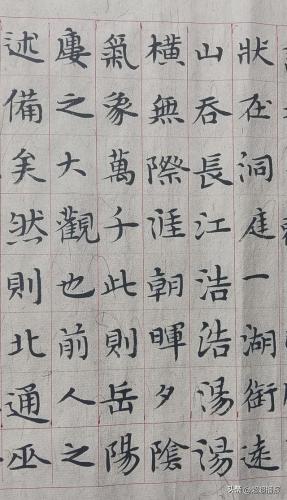 狀在洞庭一湖銜遠
山吞長江浩浩湯湯
橫無際涯朝暉夕陰
氣象萬千此則岳陽
廔之大觀也前人之
述備矣然則北通巫
头条